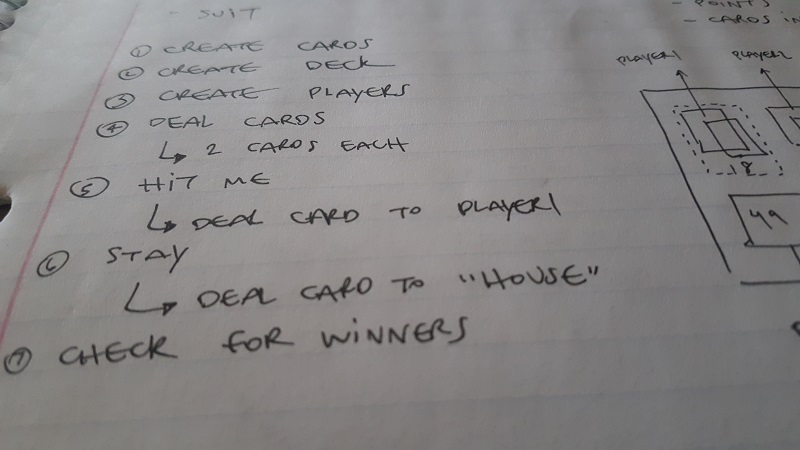 - SUIT
① CREATE CARDS
② CREATE DECK
③ CREATE PLAYERS
④ DEAL CARDS
↳ 2 CARDS EACH
⑤ HIT ME
↳ DEAL CARD TO PLAYER1
⑥ STAY
↳ DEAL CARD TO "HOUSE"
⑦ CHECK FOR WINNERS
- POINTS
- CARDS IN
PLAYER1
PLAYER2
49